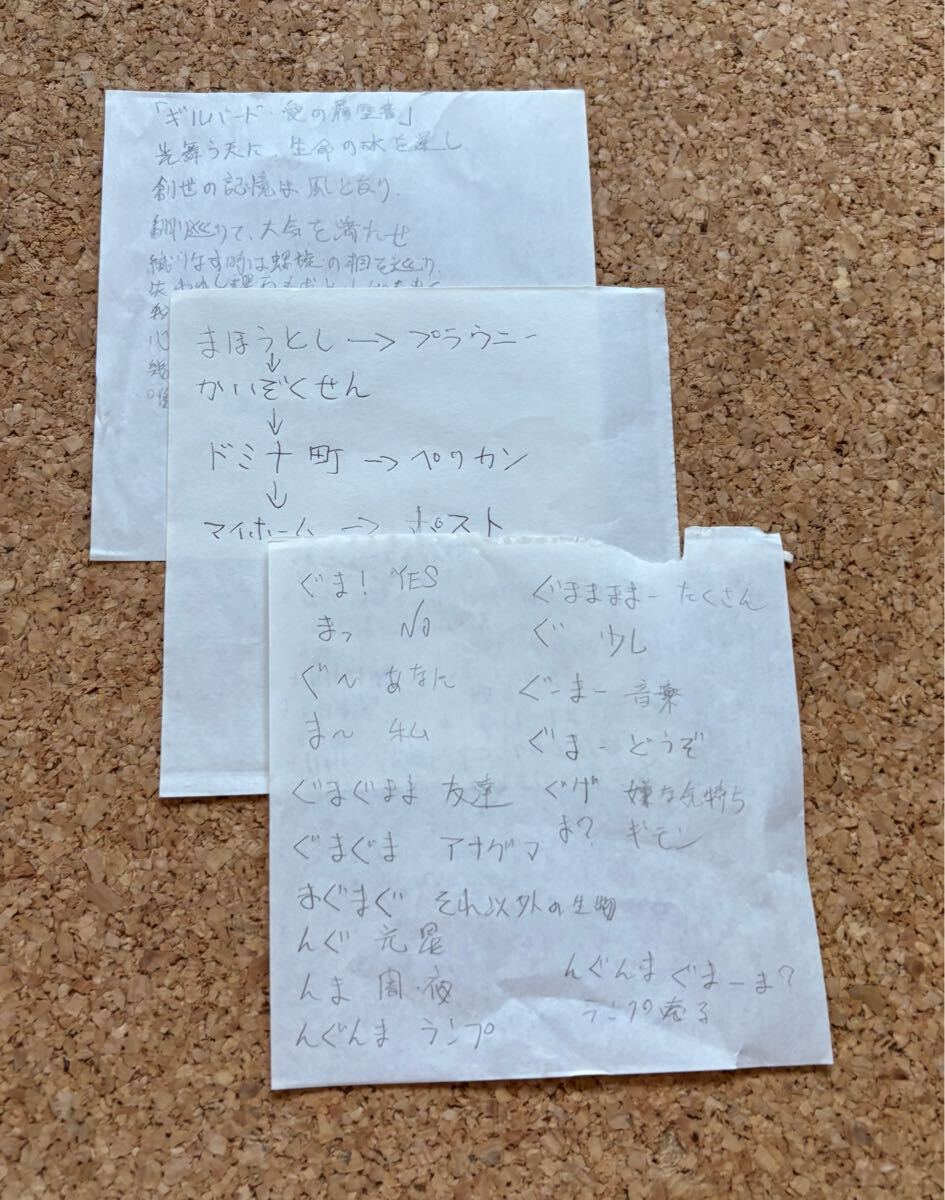 「ギルバード・愛の履歴書」
光舞う天に、生命の水を
創世の記憶は風となり、
巡りて、大気を満たせ
織りなす時は螺旋の
心
まほうとし → ブラウニー
↓
かいぞくせん
↓
ドミナ町 → ペリカン
↓
マイホーム → ポスト
ぐま! YES
まっ No
ぐ~ あなた
ま~ 私
ぐまぐまま 友達
ぐまぐま アナグマ
まぐまぐ それ以外の生物
んぐ 光星
んま 闇・夜
んぐんま ランプ
ぐまままま- たくさん
ぐ 少し
ぐーまー 音楽
ぐまー どうぞ
ぐげ 嫌な気持ち
ま? ギモン
んぐんま ぐまーま?
ランプ売る